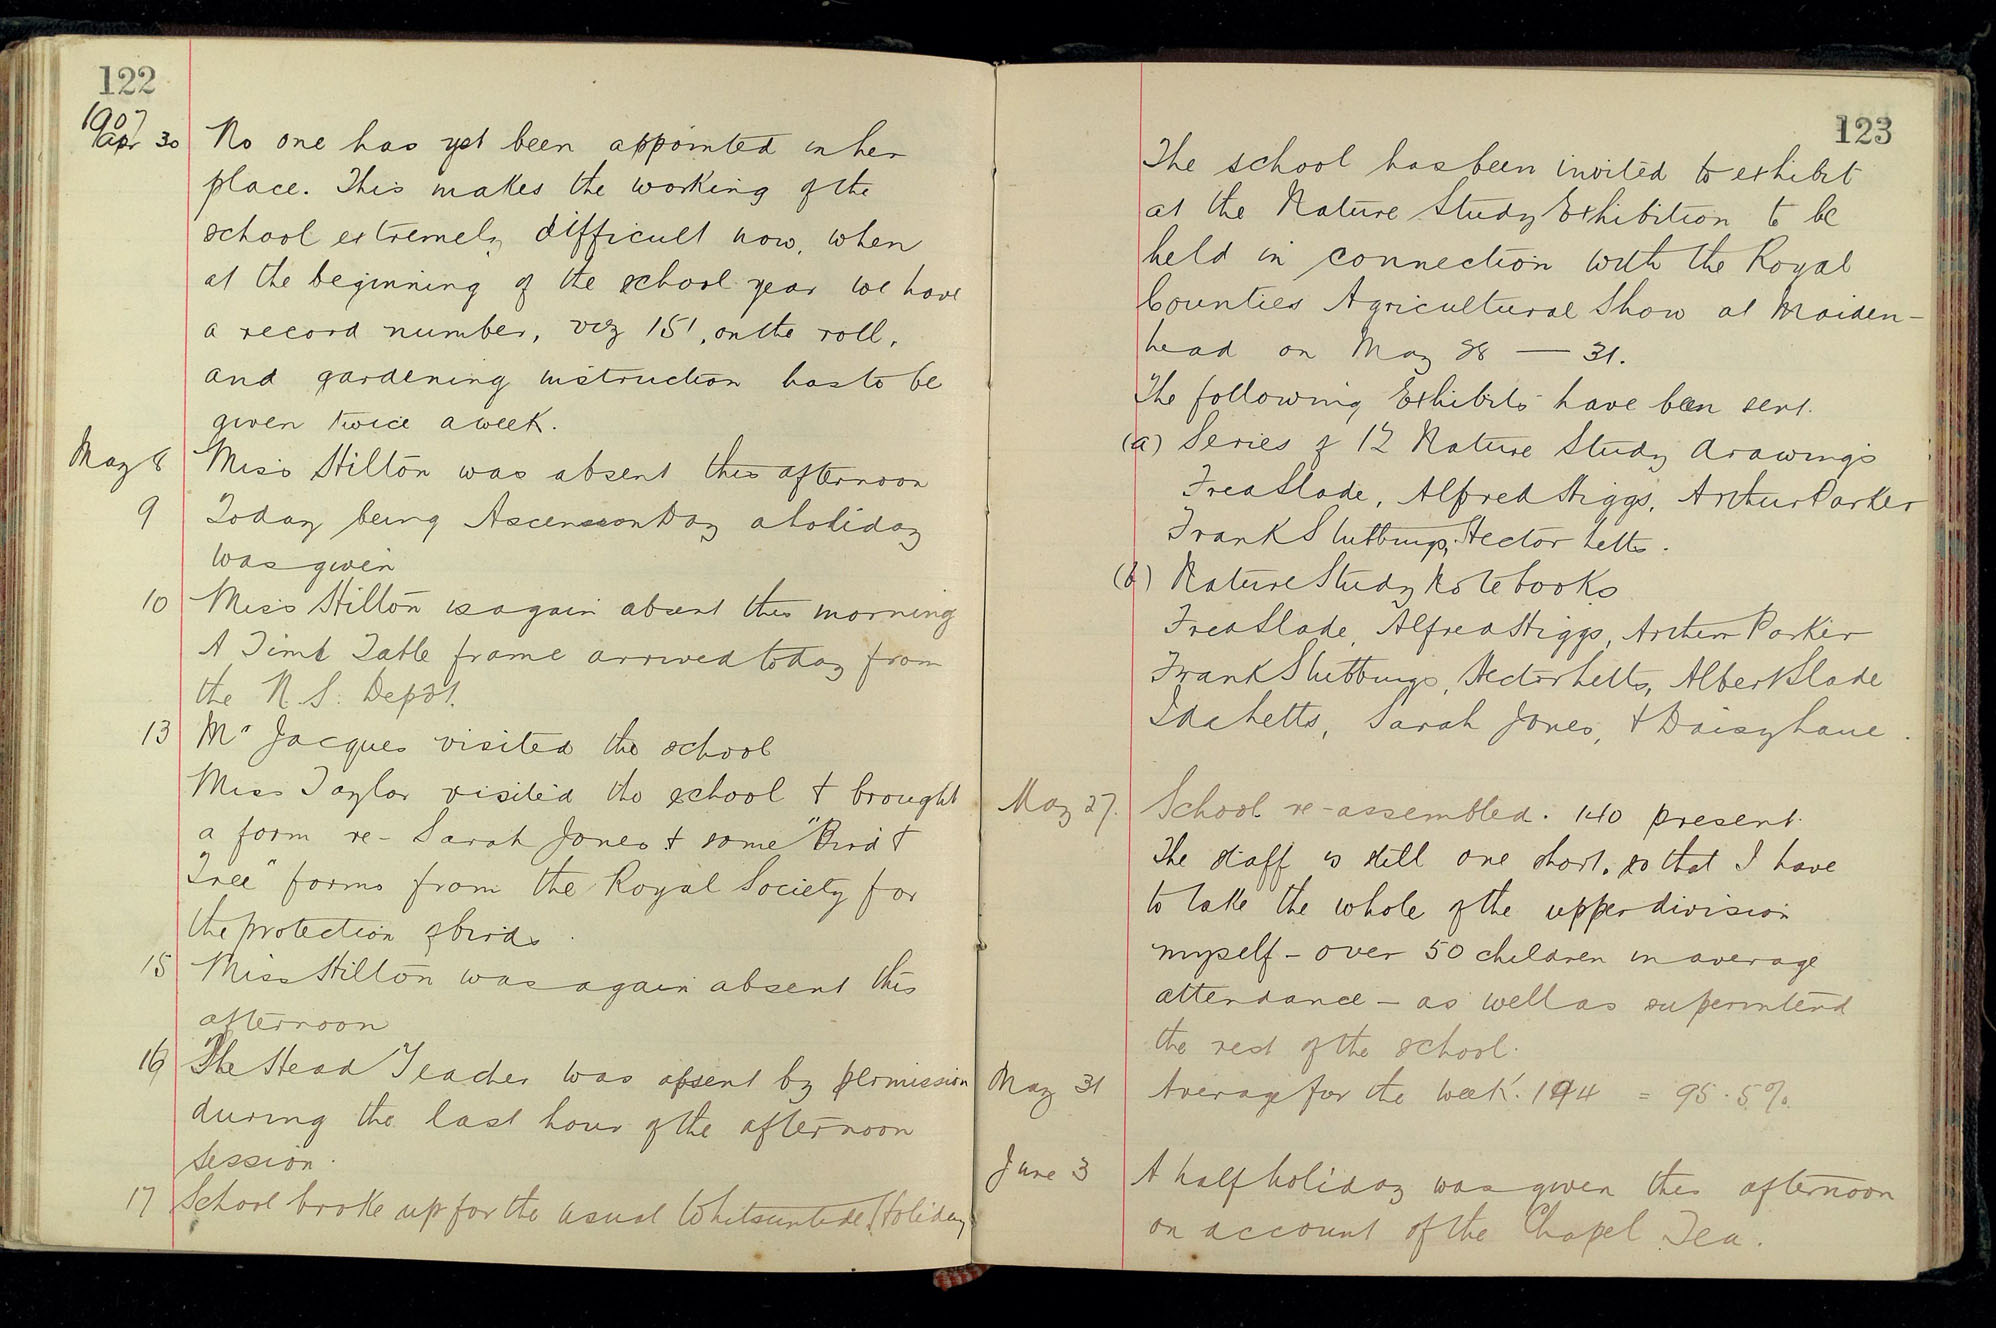 122
1907
Apr 30 No one has yet been appointed in her
place. This makes the working of the
school extremely difficult now, when
at the beginning of the school year we have
a record number, viz 151, on the roll,
and gardening instruction has to be
given twice a week.
May 8 Miss Hilton was absent this afternoon
9 Today being Ascension Day a holiday
was given
10 Miss Hilton is again absent this morning
A Time Table frame arrived today from
the N.S. Depôt.
13 Mr Jacques visited the school
Miss Taylor visited the school & brought
a form re- Sarah Jones & some "Bird &
Tree" forms from the Royal Society for
the protection of birds.
15 Miss Hilton was again absent this
afternoon
16 The Head Teacher was absent by permission
during the last hour of the afternoon
session.
17 School broke up for the usual Whitsuntide Holiday
123
The school has been invited to exhibit
at the Nature Study Exhibition to be
held in connection with the Royal
Counties Agricultural Show at Maiden-
head on May 28 — 31.
The following Exhibits have been sent.
(a) Series of 12 Nature Study drawings
Fred Slade, Alfred Higgs, Arthur Parker
Frank Stubbings, Hector Letts.
(b) Nature Study Note books
Fred Slade, Alfred Higgs, Arthur Parker
Frank Stubbings, Hector Letts, Albert Slade
Ida Letts, Sarah Jones, & Daisy Lane.
May 27. School re-assembled. 140 present.
The staff is still one short. so that I have
to take the whole of the upper division
myself - over 50 children in average
attendance - as well as superintend
the rest of the school.
May 31 Average for the week. 144 = 95.5%.
June 3 A half holiday was given this afternoon
on account of the Chapel Tea.